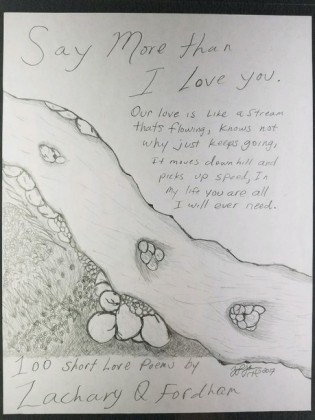 Say More than
I Love you.
Our love is Like a Stream
thats flowing, knows not
why just keeps going,
It moves down hill and
picks up speed, In
my life you are all
I will ever need.
100 short Love Poems by
Zachary Q Fordham